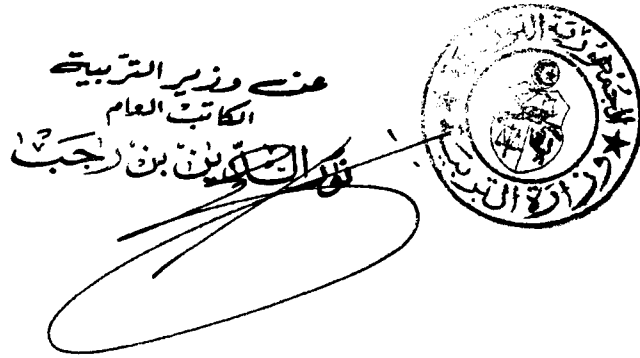 عن وزير التربية
الكاتب العام
بن رجب
الجمهورية التونسية
وزارة التربية